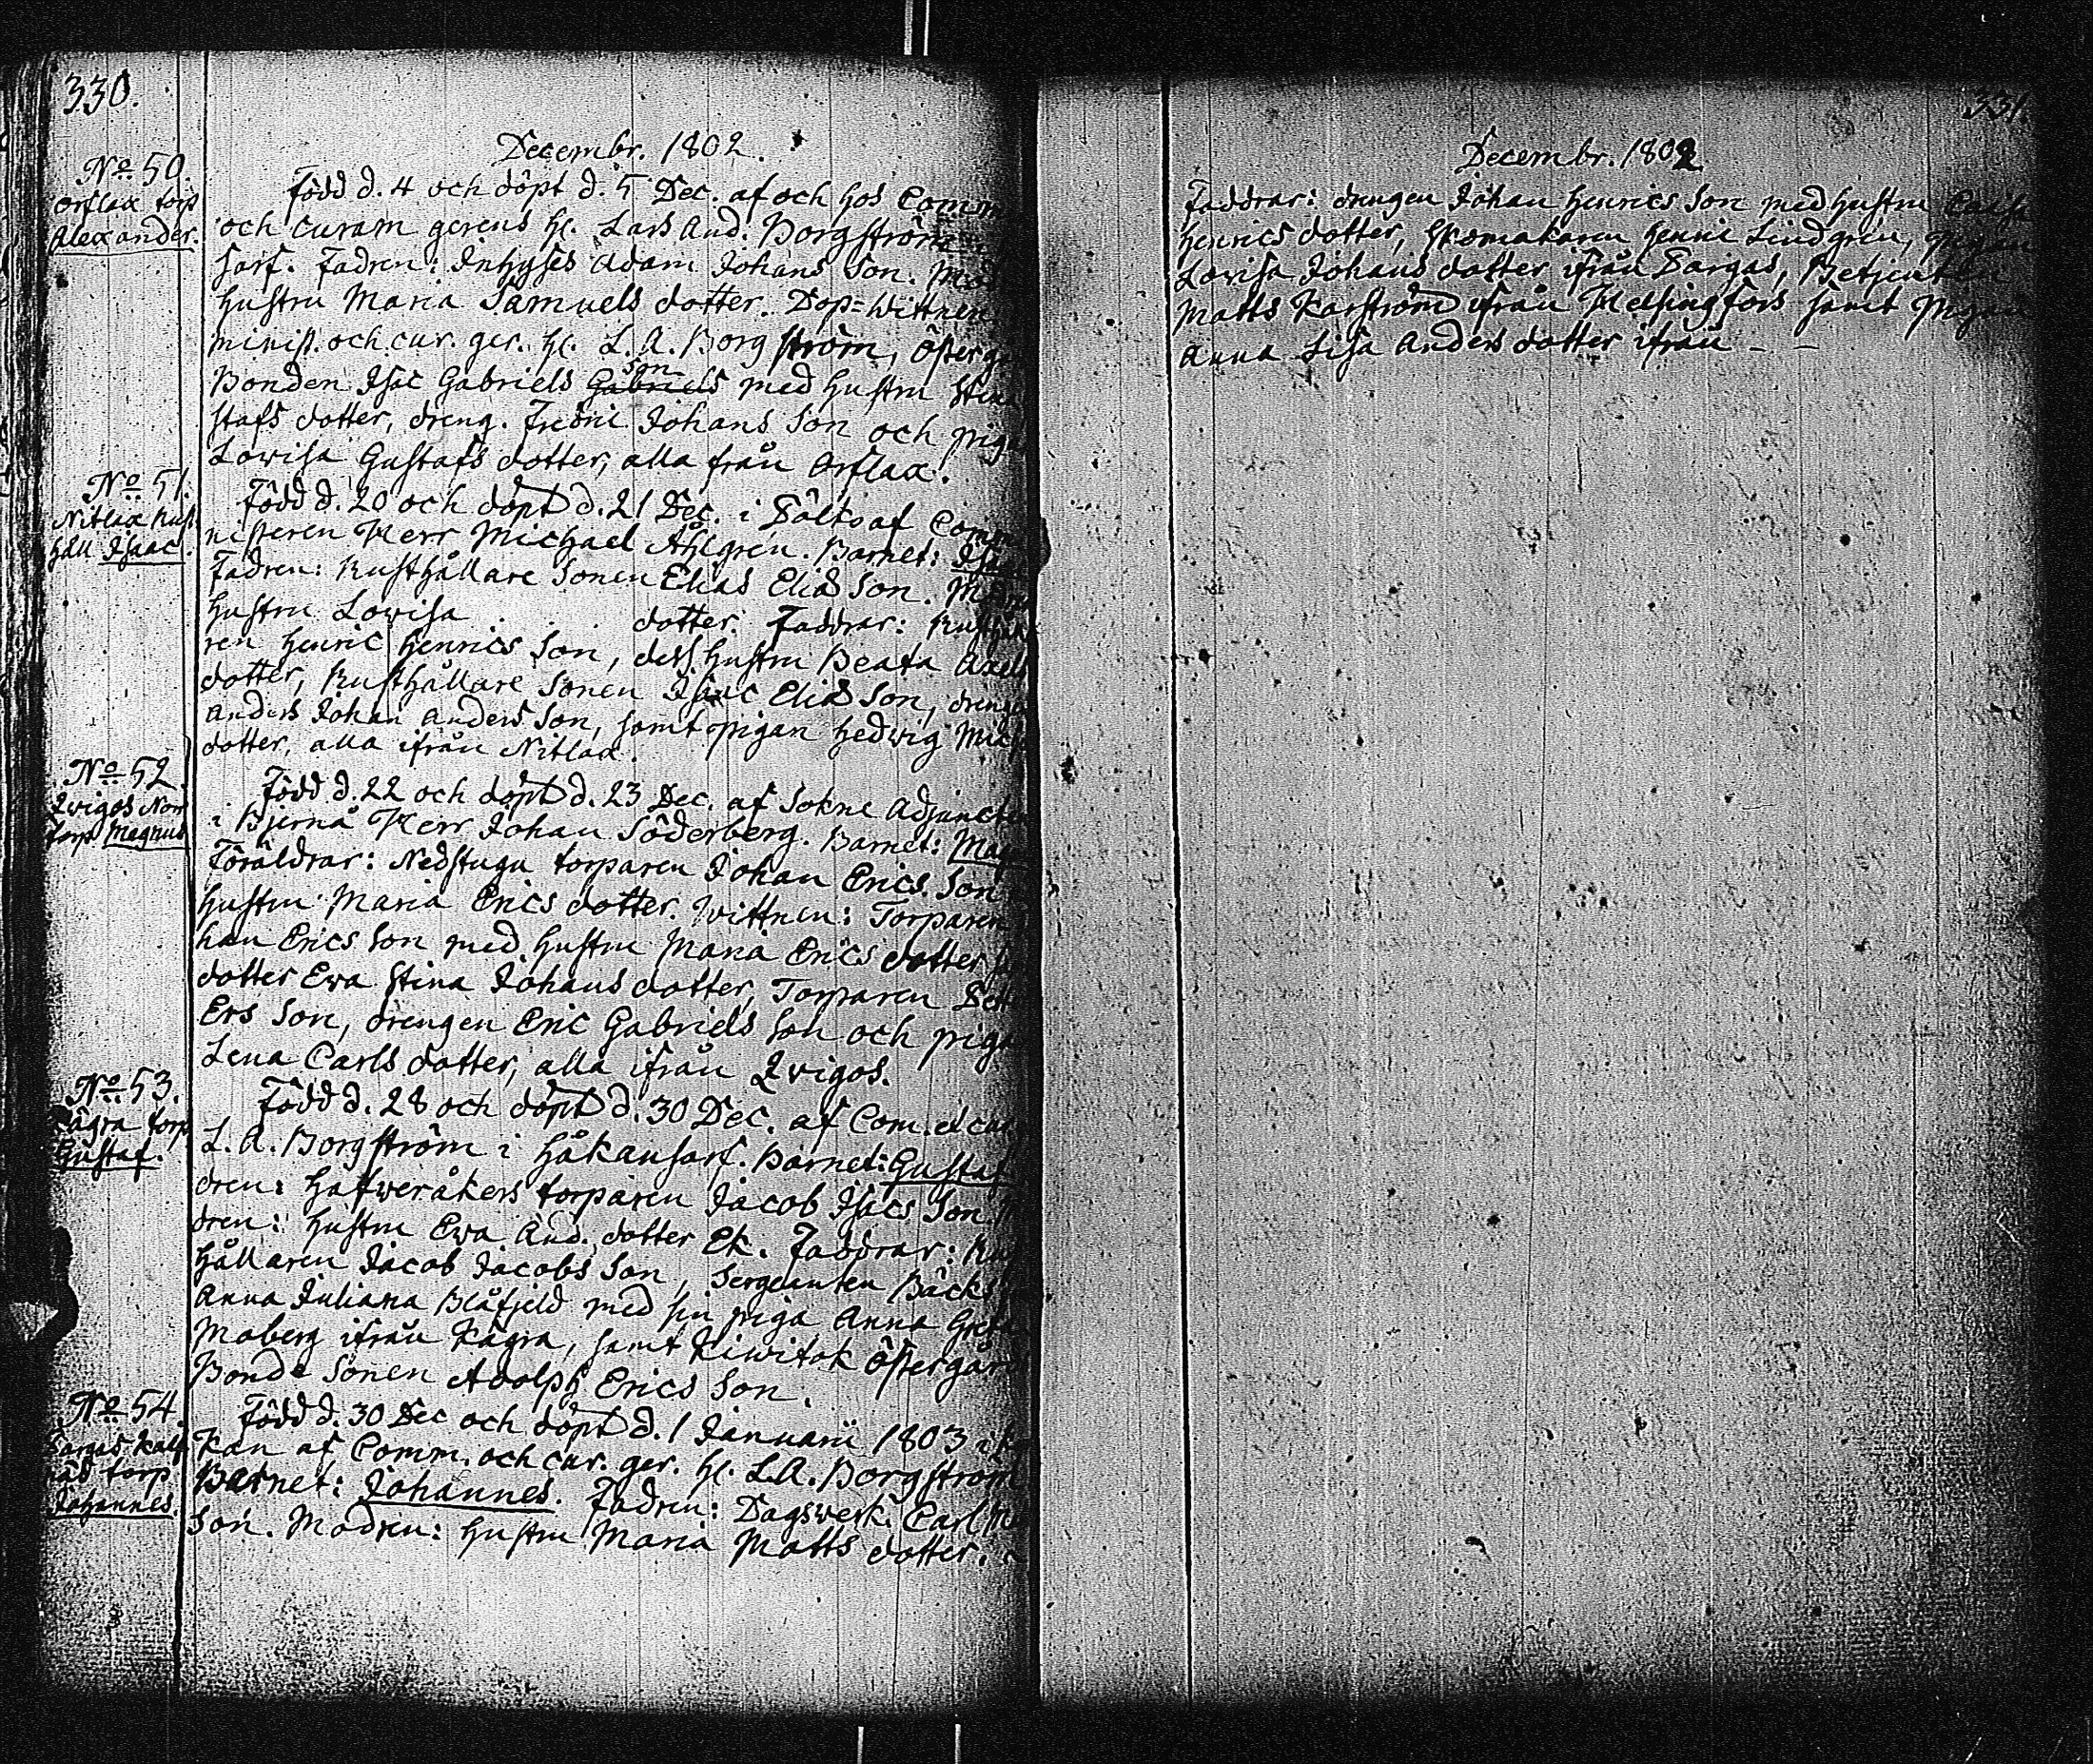 330.
Decembr. 1802.
No 50.
Orslax torp
Alexander.
Född d. 4 och döpt d. 5 Dec. af och hos Comm
och curam gerens H. Lars And. Borgström
sarf. Fadren: Inhyses Adam Johans Son. Mod
hustru Maria Samuels dotter. Dop=Wittnen
minist. och cur. ger. H. L. A. Borgström, Österg
Bonden Isac Gabriels Gabriels son med hustru Stina
stafs dotter, dreng. Fredric Johans Son och piga
Lovisa Gustafs dotter, alla från Orslax.
No 51.
Nitlax Rust
håll Isaac.
Född d. 20 och döpt d. 21 Dec. i Pältså af Comm
nisteren Herr Michael Åhlgren. Barnet: Isaa
Fadren: Rusthållare Sonen Elias Elias Son. Modr
hustru Lovisa . . . dotter. Faddrar: Rusthålla
ren Henric Henrics Son, dess hustru Beata Axels
dotter, Rusthållare Sonen Isaac Elias Son, drengen
Anders Johan Anders Son, samt pigan Hedvig Mich
dotter, alla ifrån Nitlax.
No 52.
Qvigos Norr
torp Magnus
Född d. 22 och döpt d. 23 Dec. af Sokne Adjuncten
i Bjernå Herr Johan Söderberg. Barnet: Mag
Föräldrar: Nedstugu torparen Johan Erics Son
hustru Maria Erics dotter. Wittnen: Torparen
han Erics Son med hustru Maria Erics dotter
dotter Ewa Stina Johans dotter, Torparen
Ers Son, drengen Eric Gabriels Son och piga
Lena Carls dotter, alla ifrån Qvigos.
No 53.
Kågra torp
Gustaf.
Född d. 28 och döpt d. 30 Dec. af Com. et cur
L. A. Borgström i Håkansarf. Barnet: Gustaf
dren: Hafweråkers torparen Jacob Isacs Son
dren: hustru Ewa And. dotter Ek. Faddrar: Rus
hållaren Jacob Jacobs Son, Sergeanten Bäcks
Anna Juliana Blåfjeld med sin piga Anna Greta
Moberg ifrån Kågra, samt Kiwitok Östergård
Bonde Sonen Adolph Erics Son.
No 54.
Pargas Kalf
näs torp
Johannes.
Född d. 30 Dec och döpt d. 1 Januarii 1803 i kyr
kan af Comm. och cur. ger. H. L. A. Borgström
Barnet: Johannes. Fadren: Dagswerk. Carl
Son. Modren: hustru Maria Matts dotter.
331.
Decembr. 1802
Faddrar: drengen Johan Henrics Son med hustru Caisa
Henrics dotter, Skomakaren Henric Lindgren, pigan
Lovisa Johans dotter ifrån Pargas, Betjenten
Matts Karström ifrån Helsingfors samt pigan
Anna Lisa Anders dotter ifrån - -